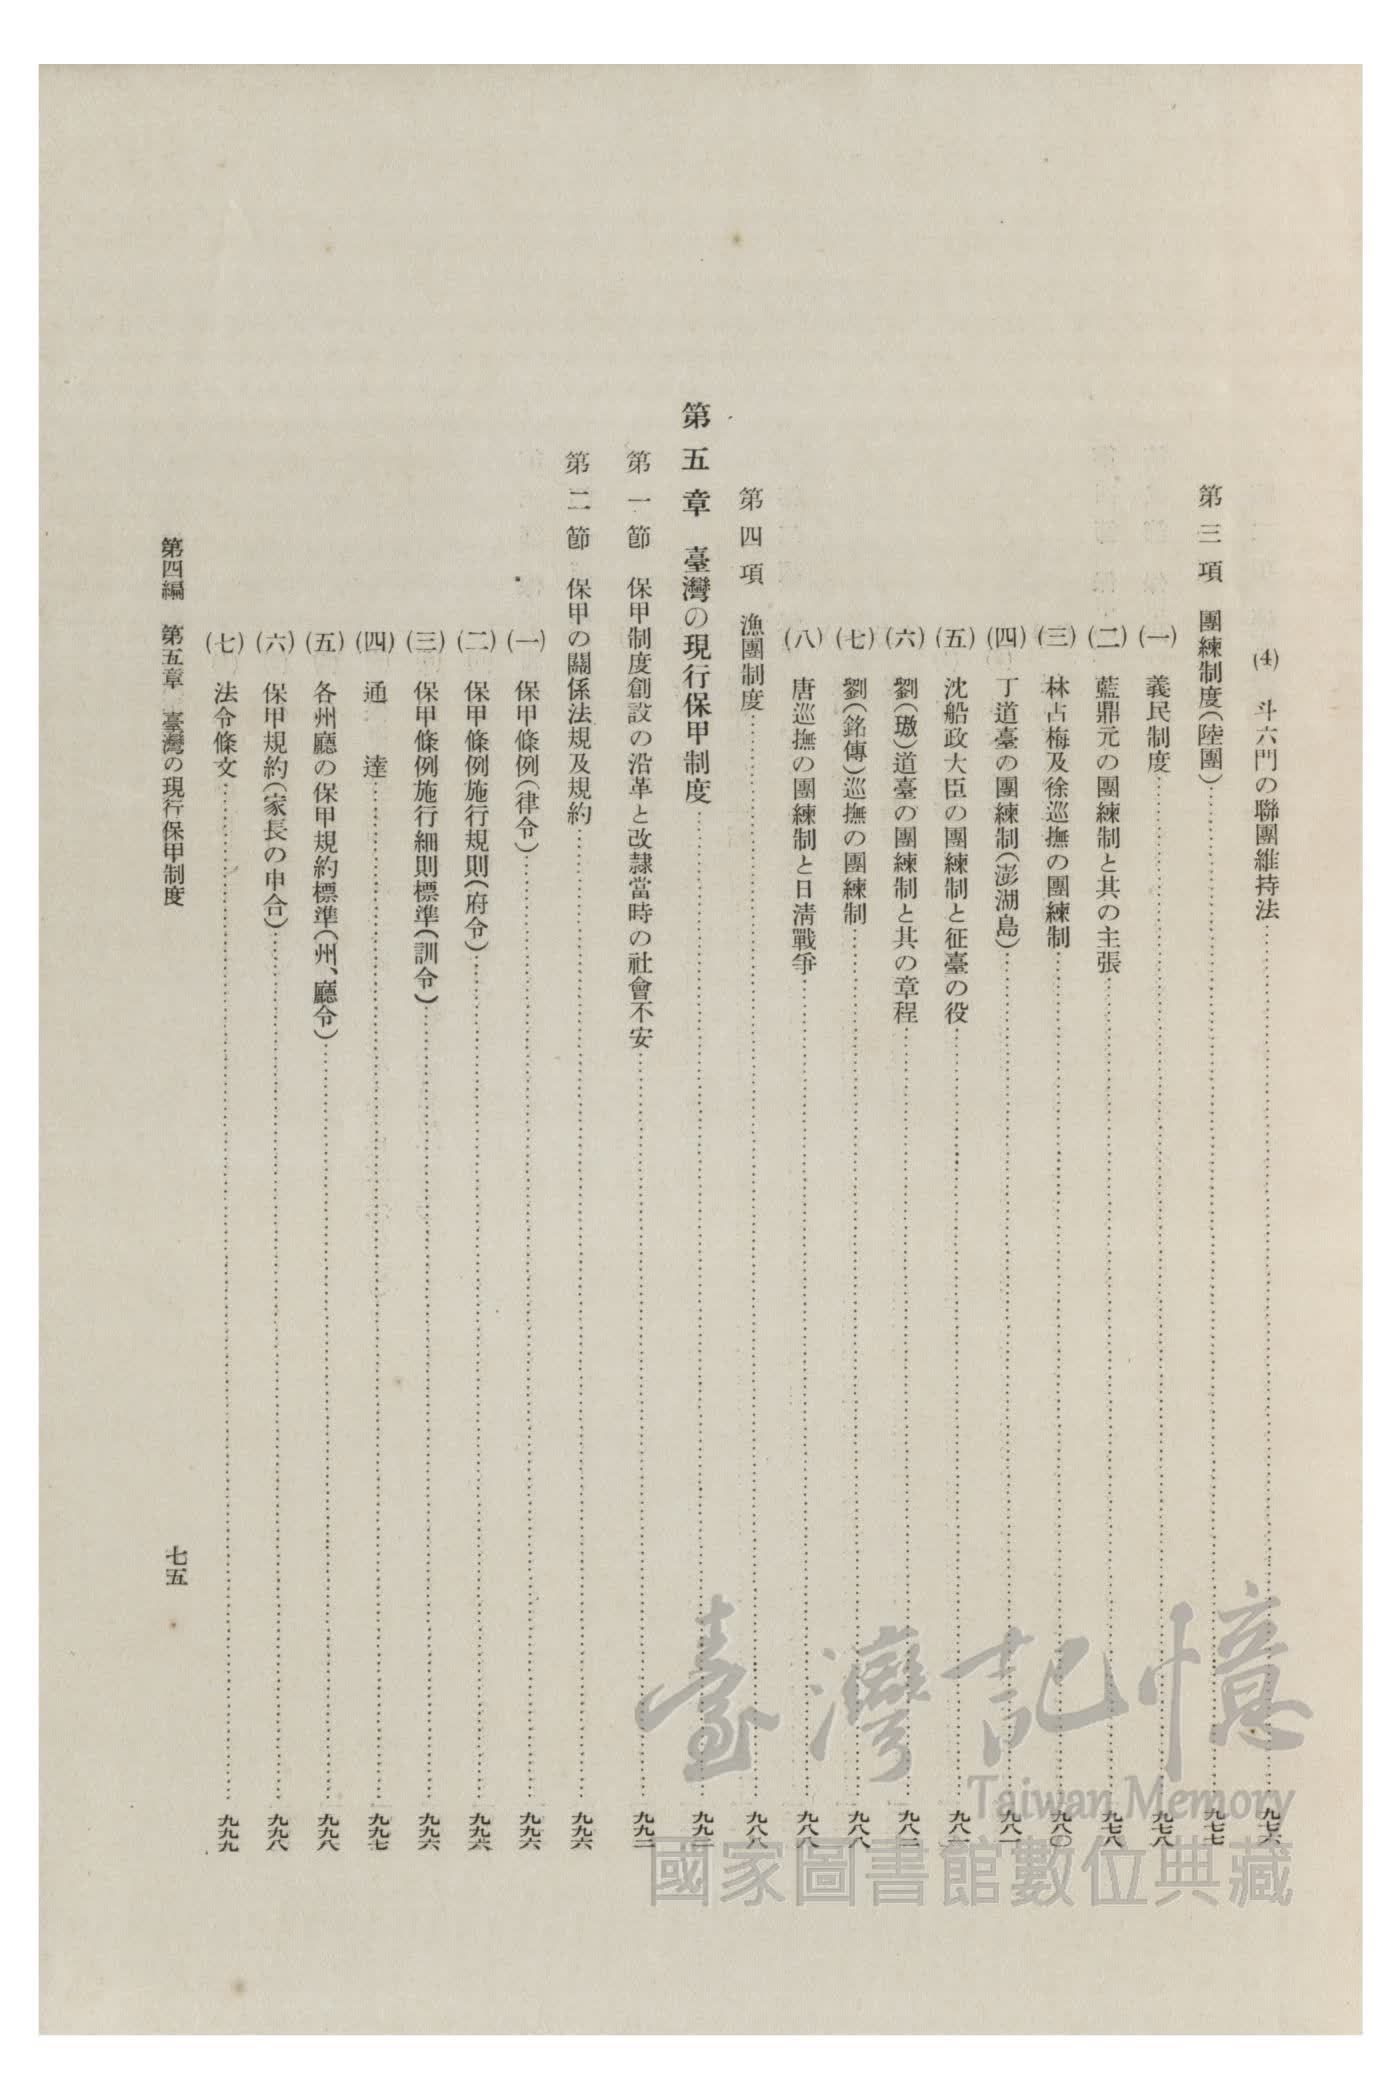 (4) 斗六門の聯團維持法……九七六
第三項 團練制度(陸團)……九七七
(一) 義民制度……九七八
(二) 藍鼎元の團練制と其の主張……九七八
(三) 林占梅及徐巡撫の團練制……九八〇
(四) 丁道臺の團練制(澎湖島)……九八一
(五) 沈船政大臣の團練制と征臺の役……九八
(六) 劉(璈)道臺の團練制と其の章程……九八
(七) 劉(銘傳)巡撫の團練制……九八八
(八) 唐巡撫の團練制と日淸戰爭……九八八
第四項 漁團制度……九八八
第五章 臺灣の現行保甲制度……九九
第一節 保甲制度創設の沿革と改隷當時の社會不安……九九
第二節 保甲の關係法規及規約……九九六
(一) 保甲條例(律令)……九九六
(二) 保甲條例施行規則(府令)……九九六
(三) 保甲條例施行細則標準(訓令)……九九六
(四) 通達……九九七
(五) 各州廳の保甲規約標準(州、廳令)……九九八
(六) 保甲規約(家長の申合)……九九八
(七) 法令條文……九九九
第四編 第五章 臺灣の現行保甲制度
七五
臺灣記憶
Taiwan Memory
國家圖書館數位典藏